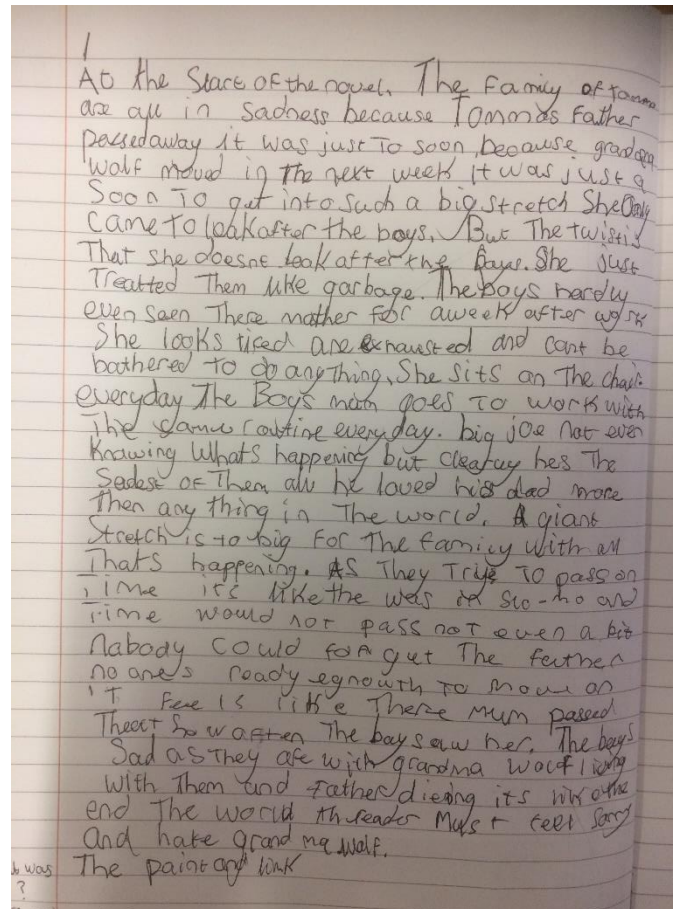 1
At the Start of the novel. The Family of Tommo
are all in Sadness because Tommos Father
passedaway it was just To soon, because grandma
wolf moved in The next week it was just a
Soon To get into such a big stretch She Only
came to look after the boys. But The twist is
That she doesnt look after the Boys. She just
Treatted Them like garbage. The boys hardly
even seen There mother for aweek after work
She looks tired are exhausted and cant be
bothered to do any thing, She sits on The chair
everyday The Boys mom goes To work with
The same routine everyday. big joe not even
Knowing Whats happening but clearly hes The
Sadest of Them all he loved his dad more
then any thing in The world. A giant
Stretch is to big For the family with all
Thats happening. As They Trye To pass on
Time its like the was in slo-mo and
Time would not pass not even a bit
nobody could forget The father
no ones ready egnowth to move on
iT Feel is like There Mum passed
Theat how often The boy saw her. The boys
Sad as They are with grandma wolf living
with Them and Father dieing its like the
end The world th reader Must feel sorry
And hate grand ma wolf.
was The paint and link
?